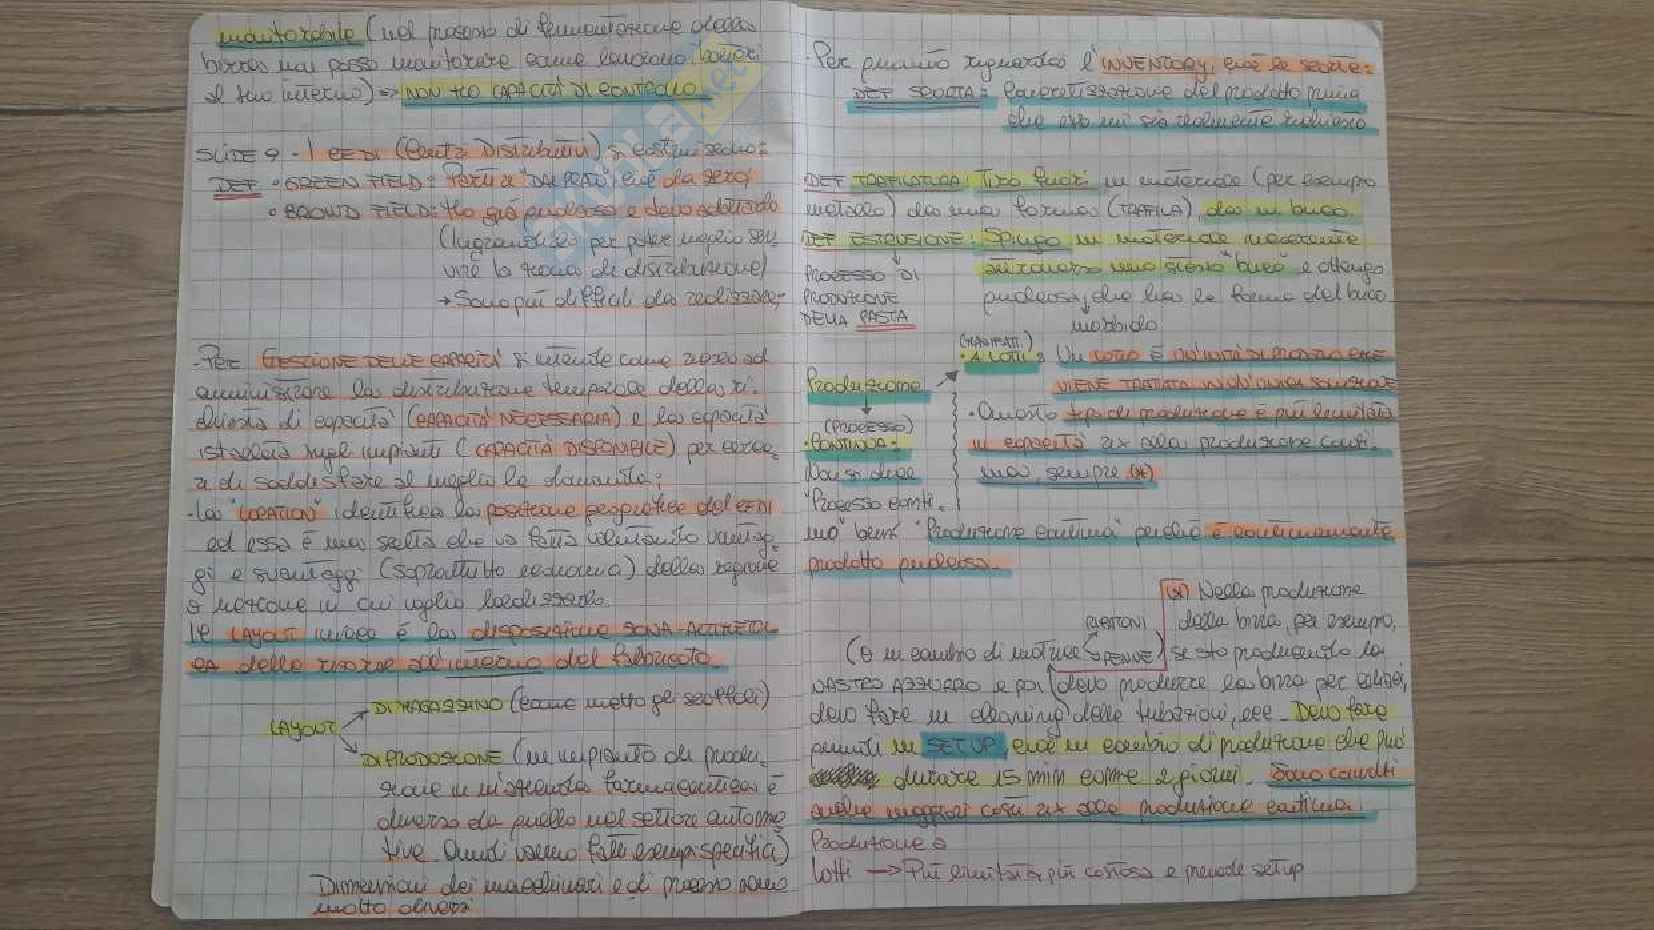 monitorabile (nel processo di fermentazione della
birra non posso monitorare come lavorano i batteri
al suo interno) => NON HO CAPACITÀ DI CONTROLLO
SLIDE 9 - I CEDI (Centri Distributivi) si costruiscono:
DEF • GREEN FIELD: Parti "DAL PRATO", cioè da zero;
• BROWN FIELD: Ho già qualcosa e devo adattarlo
(Ingrandirlo per poter meglio ser-
vire la zona di distribuzione)
→ Sono più difficili da realizzare;
- Per GESTIONE DELLE CAPACITÀ si intende come riesco ad
amministrare la distribuzione temporale della ri-
chiesta di capacità (CAPACITÀ NECESSARIA) e la capacità
istallata sugli impianti (CAPACITÀ DISPONIBILE) per cerca-
re di soddisfare al meglio la domanda;
- La "LOCATION" identifica la posizione geografica del CEDI
ed essa è una scelta che va fatta valutando vantag-
gi e svantaggi (soprattutto economici) della regione
o nazione in cui voglio localizzarlo.
Il LAYOUT invece è la disposizione
delle risorse all'interno del fabbricato.
LAYOUT
DI MAGAZZINO (come metto gli scaffali)
DI PRODUZIONE (un impianto di produ-
zione di un'azienda farmaceutica è
diverso da quello nel settore automo-
tive. Quindi vanno fatti esempi specifici)
Dimensioni dei macchinari e di processo sono
molto diversi
- Per quanto riguarda l'INVENTORY, cioè le scorte:
DEF SCORTA: Caratterizzazione del prodotto prima
che esso mi sia realmente richiesto
DEF TRAFILATURA: Tiro fuori un materiale (per esempio
metallo) da una forma (TRAFILA), da un buco
DEF ESTRUSIONE: Spingo un materiale
attraverso uno stesso "buco" e ottengo
qualcosa, che ha la forma del buco
morbido
PROCESSO DI
PRODUZIONE
DELLA PASTA
Produzione
(MANIFATT.)
• A LOTTI: Un LOTTO È UN'UNITÀ DI PRODOTTO CHE
VIENE TRATTATA IN UN'UNICA SOLUZIONE
• Questo tipo di produzione è più limitata
in capacità rix alla produzione conti-
nua, sempre (*)
(PROCESSO)
• CONTINUA:
Non si dice
"Processo conti-
nuo" bensì "Produzione continua" perché è continuamente
prodotto qualcosa.
(*) Nella produzione
della birra, per esempio,
se sto producendo la
RIGATONI
(o un cambio di matrice PENNE)
NASTRO AZZURRO e poi devo produrre la birra per
devo fare un cleaning delle tubazioni, ecc. Devo fare
quindi un SETUP, cioè un cambio di produzione che può
durare 15 min come 2 giorni. Sono condotti
anche maggiori costi rix alla produzione continua.
Produzione a
lotti → Più limitata, più costosa e prevede setup